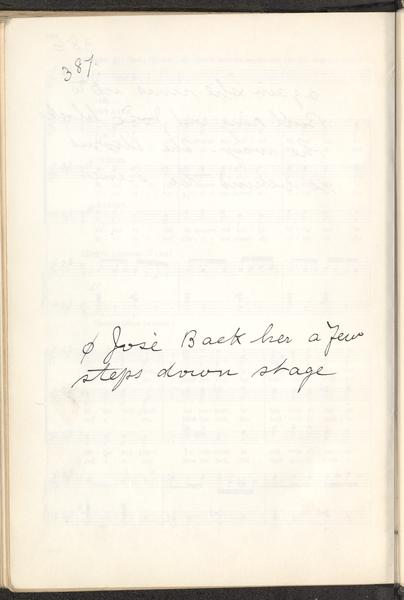 387.
φ José Back her a few
steps down stage